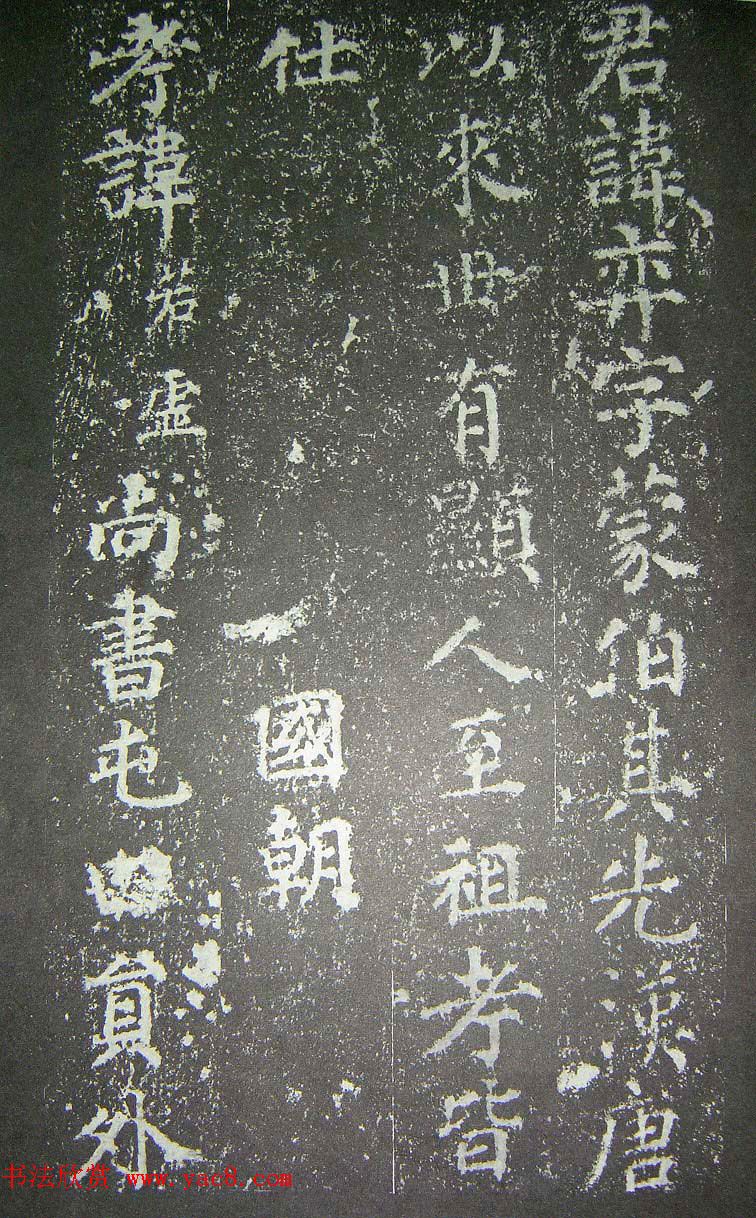 君諱弈字蒙伯其先漢唐
以來世有顯人至祖考皆
仕 國朝
考諱若虛尚書屯田員外
书法欣赏 www.yac8.com